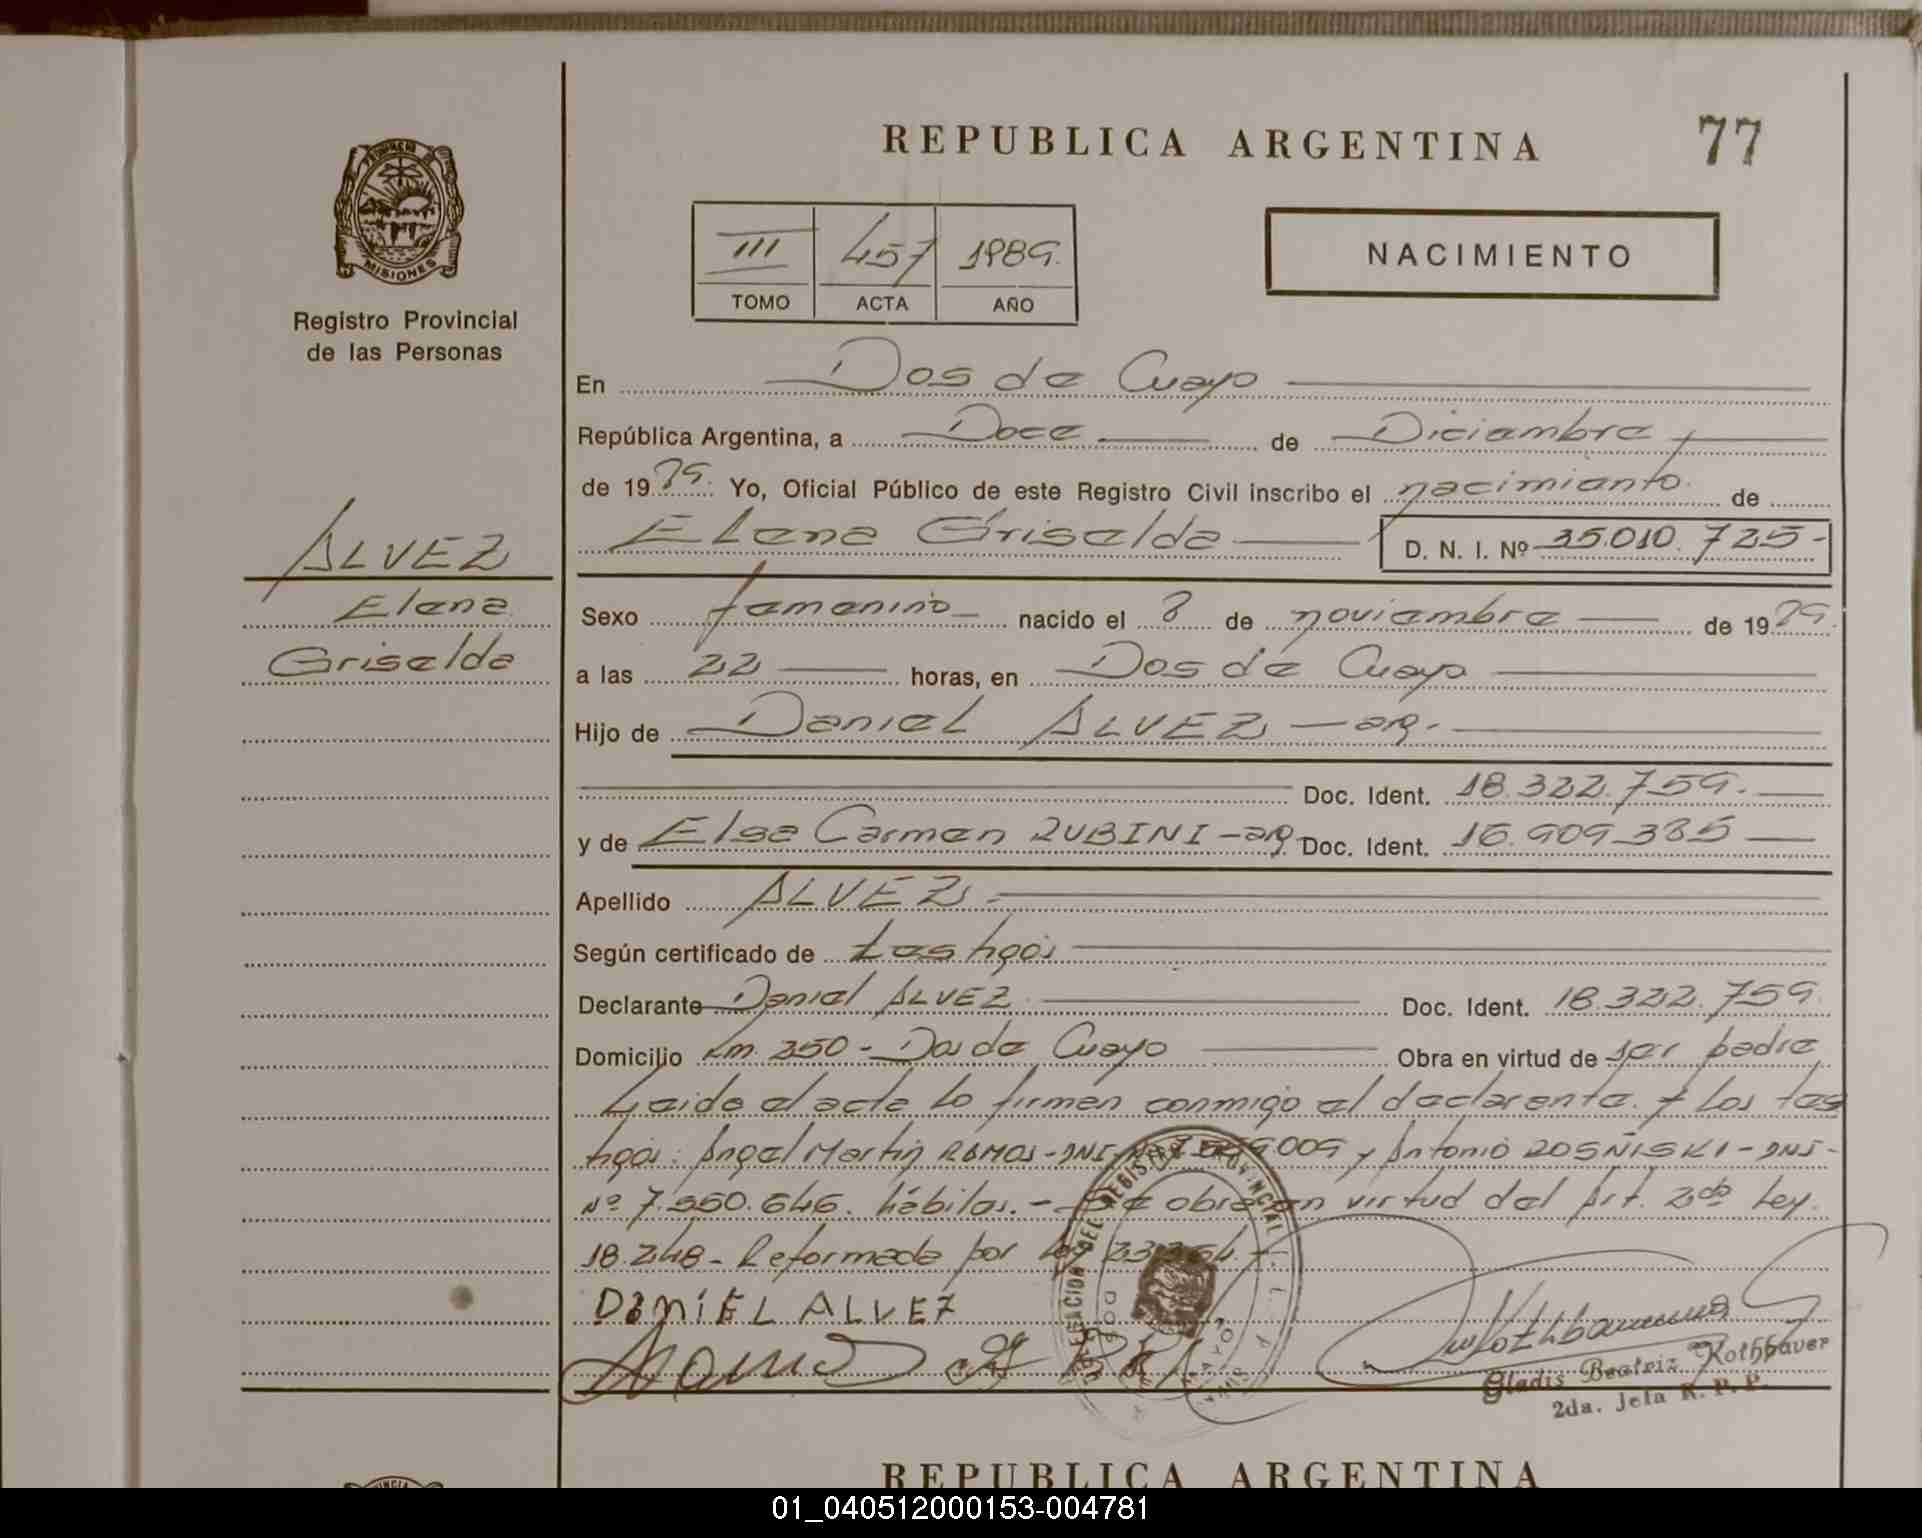 REPUBLICA ARGENTINA 77
PROVINCIA DE
MISIONES
Registro Provincial
de las Personas
III 457 1989.
TOMO ACTA AÑO
NACIMIENTO
En Dos de Mayo
República Argentina, a Doce de Diciembre
de 1989. Yo, Oficial Público de este Registro Civil inscribo el nacimiento de
Elena Griselda D. N. I. Nº 35.010.725-
ALVEZ
Elena
Griselda
Sexo femenino nacido el 8 de noviembre de 1989.
a las 22 horas, en Dos de Mayo
Hijo de Daniel ALVEZ - arg.
Doc. Ident. 18.322.759.
y de Elsa Carmen RUBINI - arg. Doc. Ident. 16.909.385
Apellido ALVEZ.
Según certificado de testigos
Declarante Daniel ALVEZ. Doc. Ident. 18.322.759.
Domicilio Km. 250 - Dos de Mayo Obra en virtud de ser padre
Leida el acta lo firman conmigo el declarante y los tes
tigos: Angel Martin RAMOS - DNI Nº 009 y Antonio ROSÑISKI - DNI -
Nº 7.550.646. hábiles. - Se obra en virtud del Art. 2do Ley.
18.248 - Reformada por Ley 23.264. -
DANIEL ALVEZ
DELEGACION DEL REGISTRO PROVINCIAL
DOS
MAYO
Gladis Beatriz Rothbauer
2da. Jefa R. P. P.
REPUBLICA ARGENTINA
01_040512000153-004781